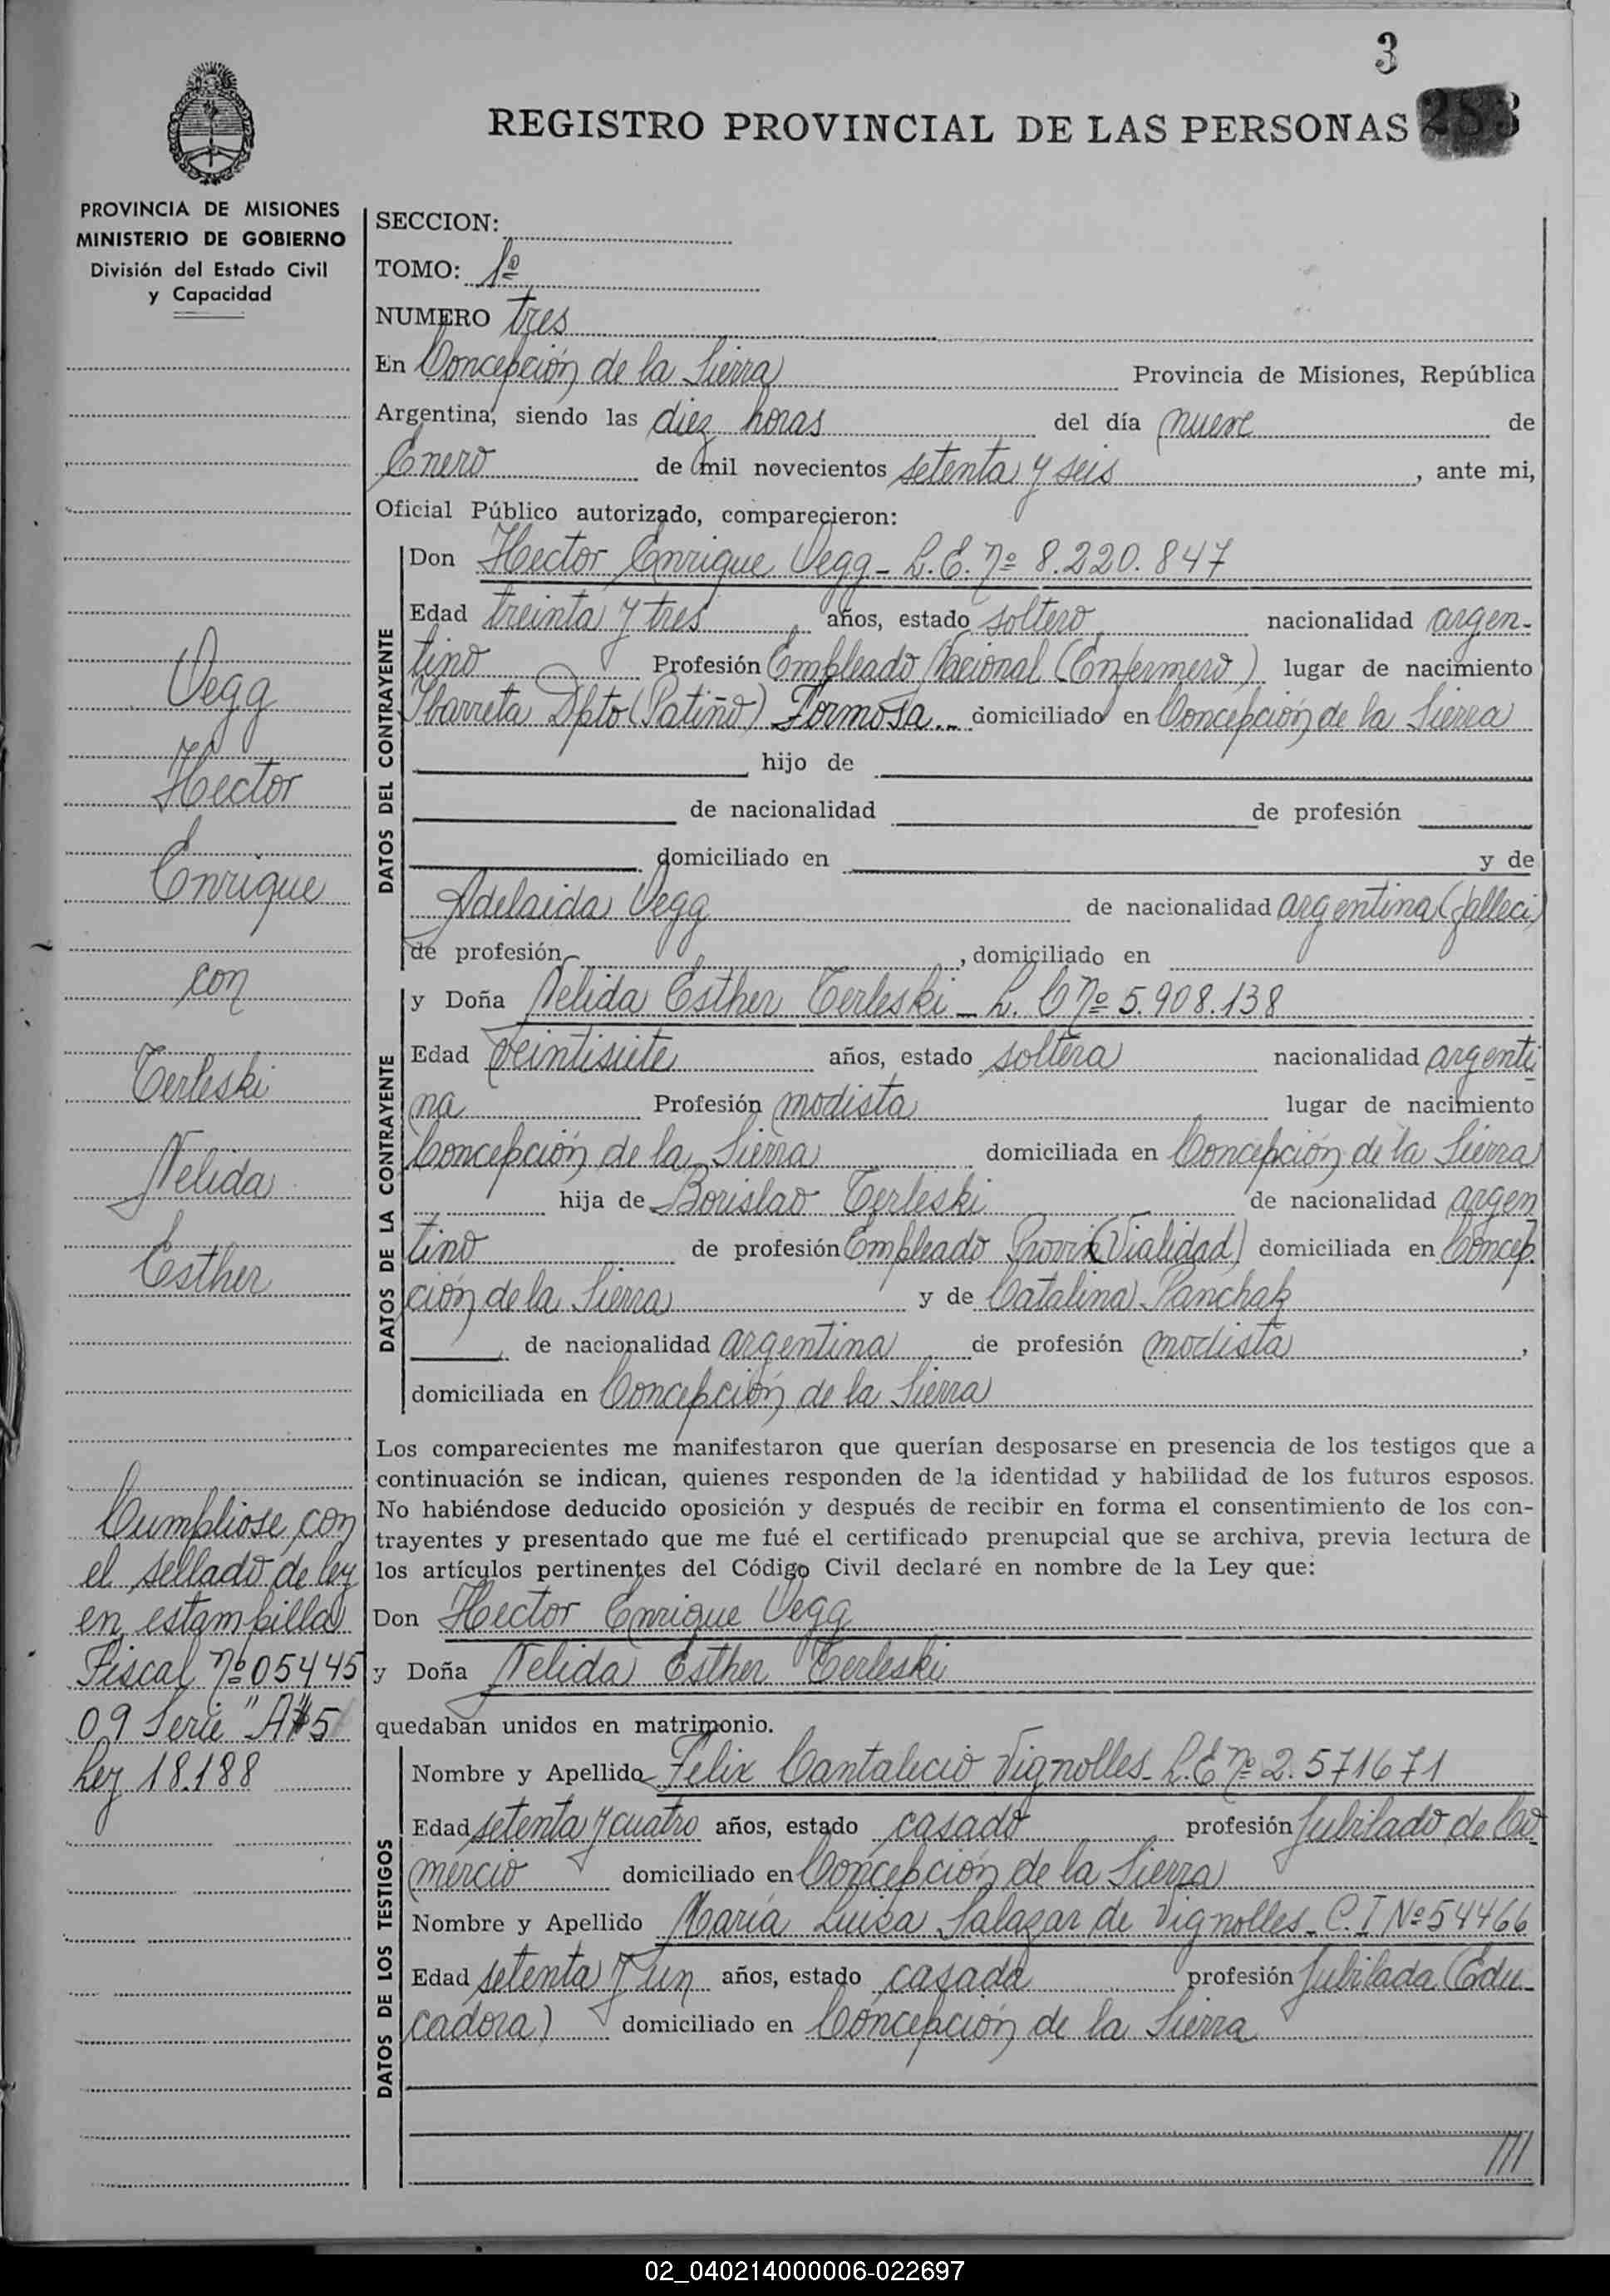 3
REGISTRO PROVINCIAL DE LAS PERSONAS 283
PROVINCIA DE MISIONES
MINISTERIO DE GOBIERNO
División del Estado Civil
y Capacidad
SECCION:
TOMO: 1º
NUMERO tres
En Concepción de la Sierra Provincia de Misiones, República
Argentina, siendo las diez horas del día nueve de
Enero de mil novecientos setenta y seis, ante mi,
Oficial Público autorizado, comparecieron:
DATOS DEL CONTRAYENTE
Don Hector Enrique Vegg - L.E. Nº 8.220.847
Edad treinta y tres años, estado soltero nacionalidad argen-
tino Profesión Empleado Nacional (Enfermero) lugar de nacimiento
Ibarreta Dpto (Patiño) Formosa.- domiciliado en Concepción de la Sierra
hijo de
de nacionalidad de profesión
domiciliado en y de
Adelaida Vegg de nacionalidad argentina (falleci)
de profesión , domiciliado en
DATOS DE LA CONTRAYENTE
y Doña Nelida Esther Terleski - L. C Nº 5.908.138
Edad veintisiete años, estado soltera nacionalidad argenti
na Profesión modista lugar de nacimiento
Concepción de la Sierra domiciliada en Concepción de la Sierra
hija de Borislao Terleski de nacionalidad argen
tino de profesión Empleado Prov. (Vialidad) domiciliada en Concep
ción de la Sierra y de Catalina Panchak
de nacionalidad argentina de profesión modista,
domiciliada en Concepción de la Sierra
Los comparecientes me manifestaron que querían desposarse en presencia de los testigos que a
continuación se indican, quienes responden de la identidad y habilidad de los futuros esposos.
No habiéndose deducido oposición y después de recibir en forma el consentimiento de los con-
trayentes y presentado que me fué el certificado prenupcial que se archiva, previa lectura de
los artículos pertinentes del Código Civil declaré en nombre de la Ley que:
Don Hector Enrique Vegg
y Doña Nelida Esther Terleski
quedaban unidos en matrimonio.
DATOS DE LOS TESTIGOS
Nombre y Apellido Felix Cantalicio Vignolles - L.E Nº 2.571671
Edad setenta y cuatro años, estado casado profesión Jubilado de Co
mercio domiciliado en Concepción de la Sierra
Nombre y Apellido María Luisa Salazar de Vignolles - C.I Nº 54466
Edad setenta y un años, estado casada profesión Jubilada (Edu-
cadora) domiciliado en Concepción de la Sierra
///
Vegg
Hector
Enrique
con
Terleski
Nelida
Esther
Cumpliose con
el sellado de ley
en estampilla
Fiscal Nº 05445
09 Serie "A" $5
Ley 18.188
02_040214000006-022697